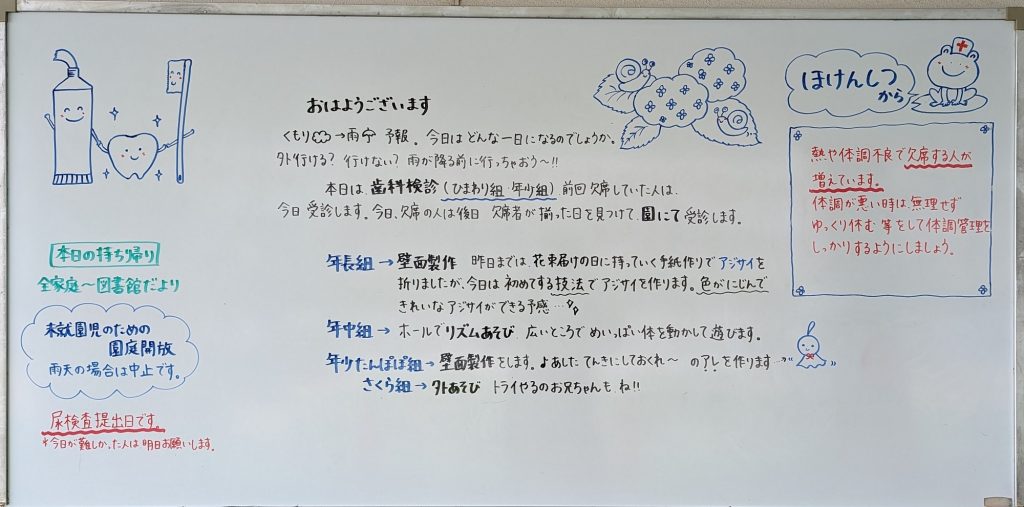 おはようございます
くもり→雨 予報。今日はどんな一日になるのでしょうか。
外行ける？行けない？雨が降る前に行っちゃおう～!!
本日は、歯科検診（ひまわり組・年少組）前回欠席していた人は、
今日受診します。今日、欠席の人は後日 欠席者が揃った日を見つけて、園にて受診します。
年長組→壁面製作 昨日までは、花束届けの日に持っていく手紙作りでアジサイを
折りましたが、今日は初めてする技法でアジサイを作ります。色がにじんで
きれいなアジサイができる予感…
年中組→ホールでリズムあそび 広いところでめいっぱい体を動かして遊びます。
年少たんぽぽ組→壁面製作をします。♪あした てんきにしておくれ～ のアレを作ります…
さくら組→外あそび トライやるのお兄ちゃんも、ね!!
本日の持ち帰り
全家庭～図書館だより
未就園児のための
園庭開放
雨天の場合は中止です。
尿検査提出日です。
*今日が難しかった人は明日お願いします。
ほけんしつ
から
熱や体調不良で欠席する人が
増えています。
体調が悪い時は無理せず
ゆっくり休む等をして体調管理を
しっかりするようにしましょう。